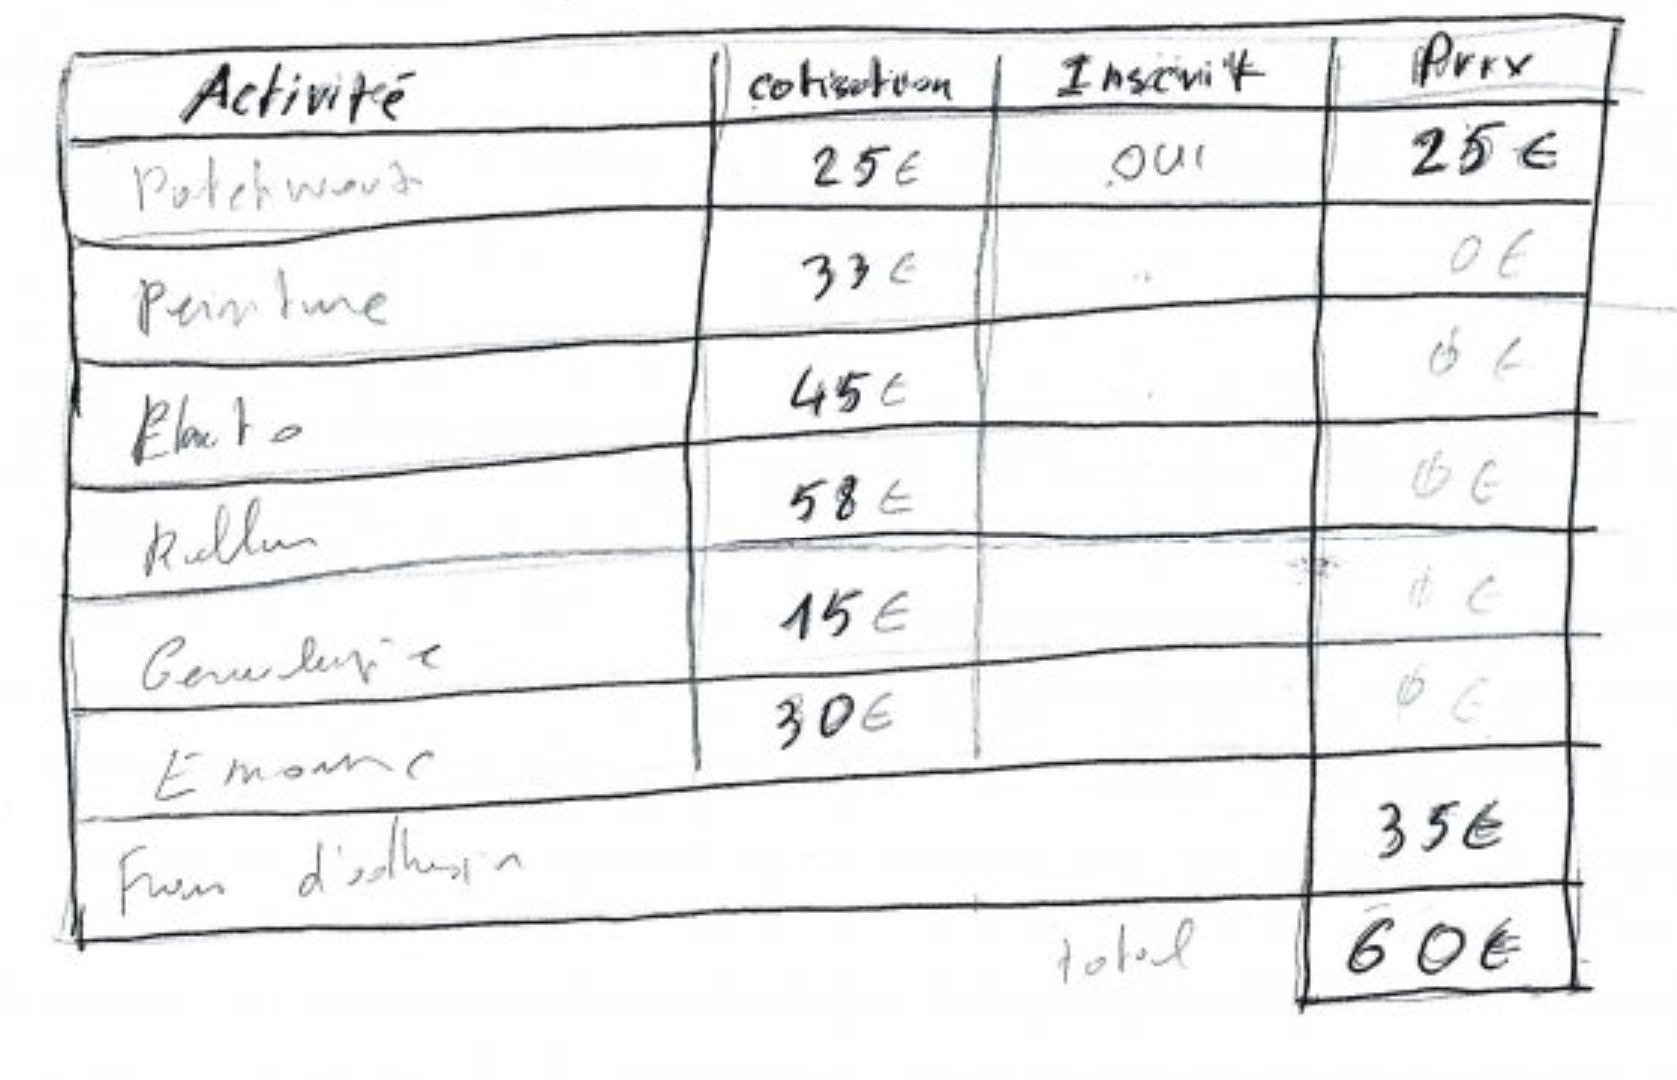 Activité cotisation Inscrit Prix
Patchwork 25€ OUI 25€
Peinture 33€ 0€
45€ 0€
58€ 0€
Genealogie 15€ 0€
30€ 0€
Frais d'adhesion 35€
total 60€